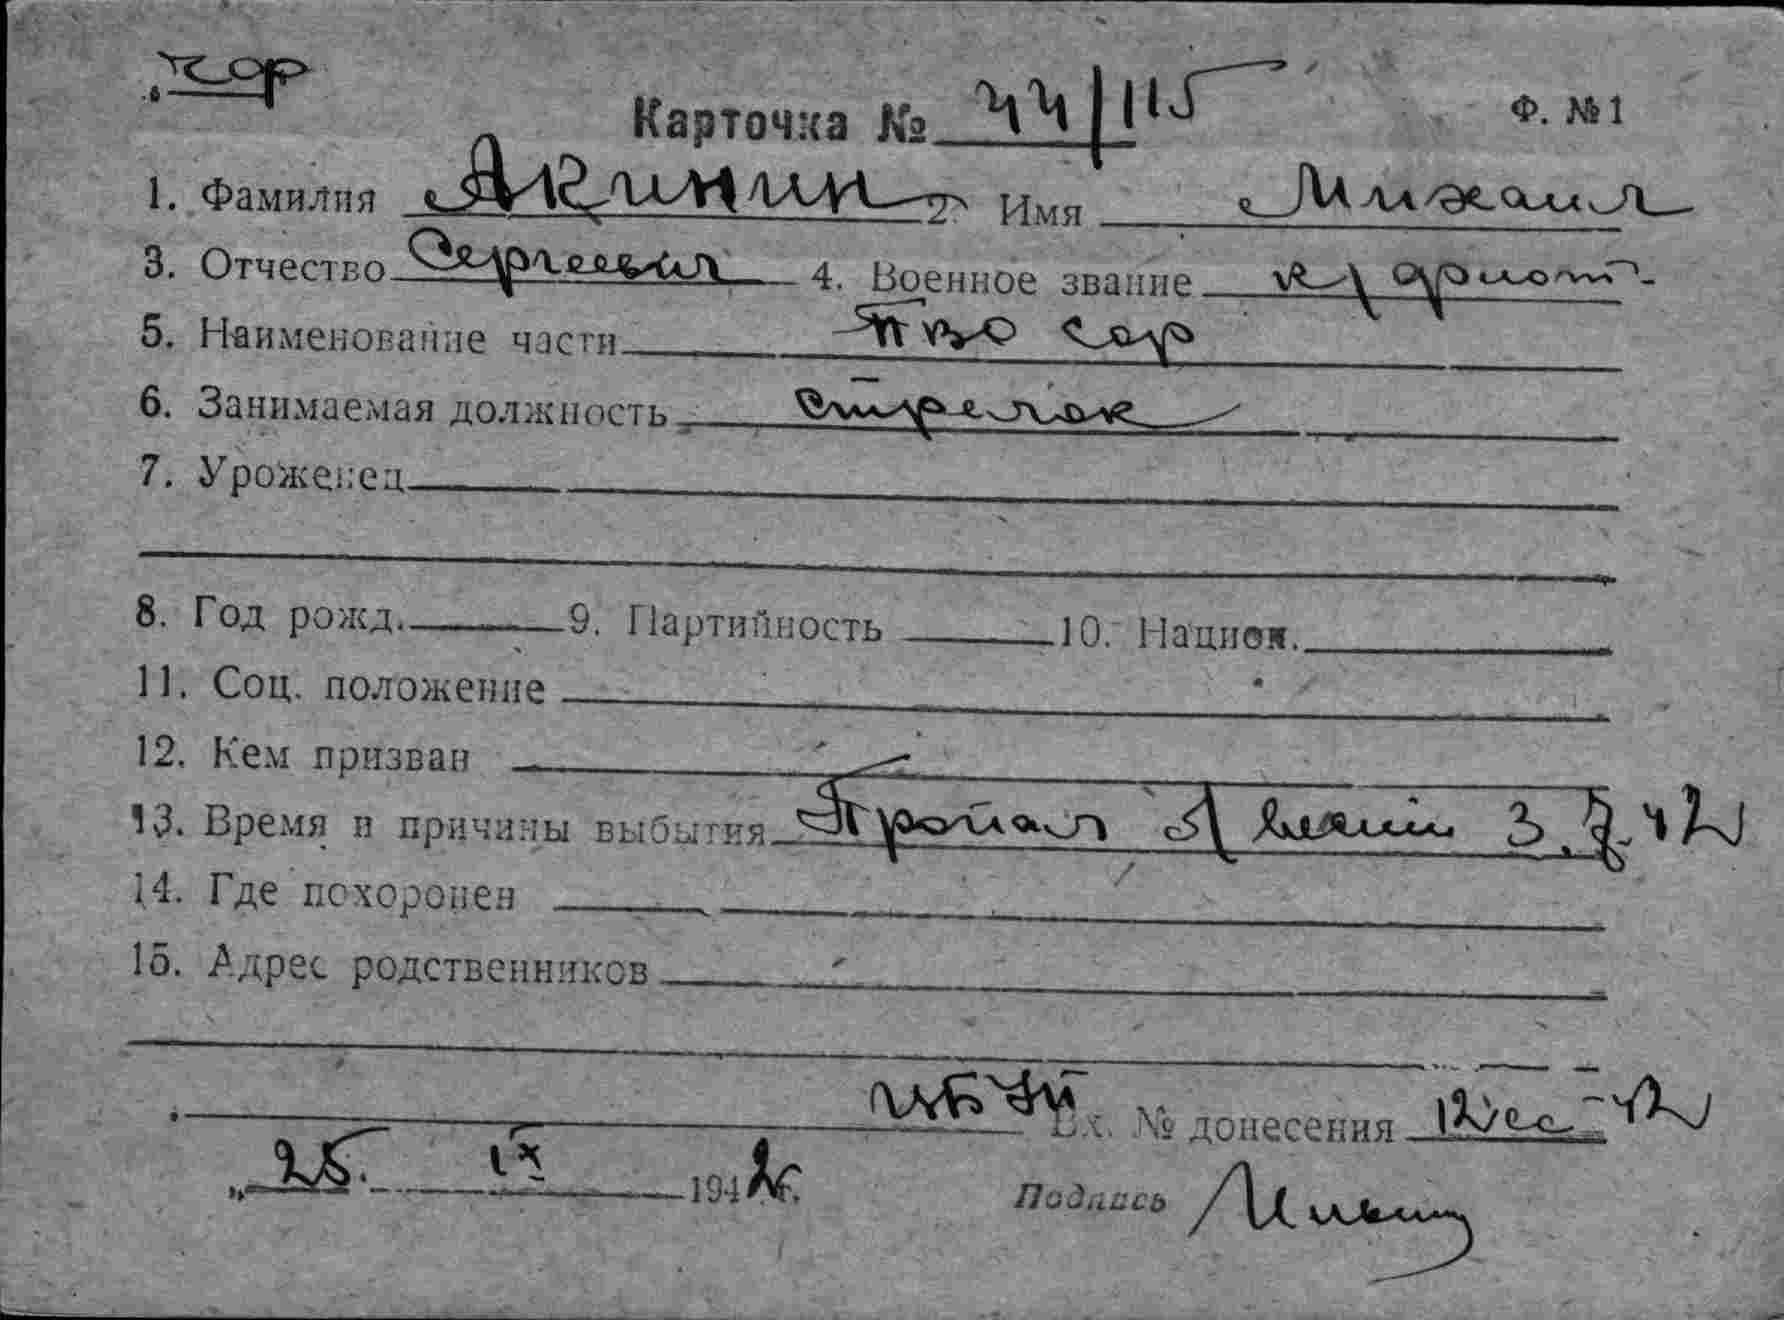 Карточка № 44/115 Ф. № 1
1. Фамилия Акинин 2. Имя Михаил
3. Отчество Сергеевич 4. Военное звание
5. Наименование части 
6. Занимаемая должность стрелок
7. Уроженец
8. Год рожд. 9. Партийность 10. Национ.
11. Соц. положение
12. Кем призван
13. Время и причины выбытия Пропал 42
14. Где похоронен
15. Адрес родственников
Вх. № донесения
„25. IX 1942г.
Подпись